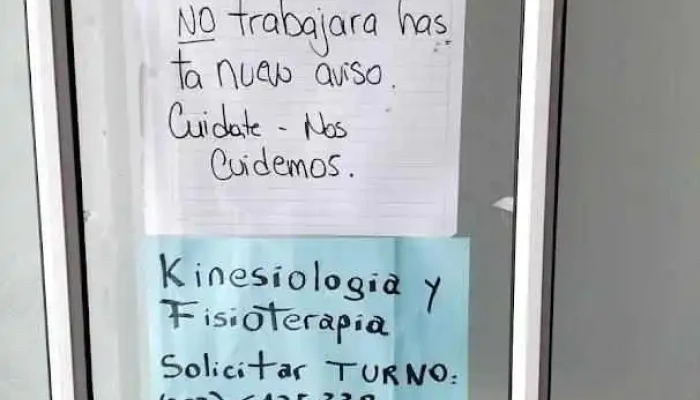 NO trabajara has
ta nuevo aviso.
Cuidate - Nos
Cuidemos.
Kinesiologia y
Fisioterapia
Solicitar TURNO: